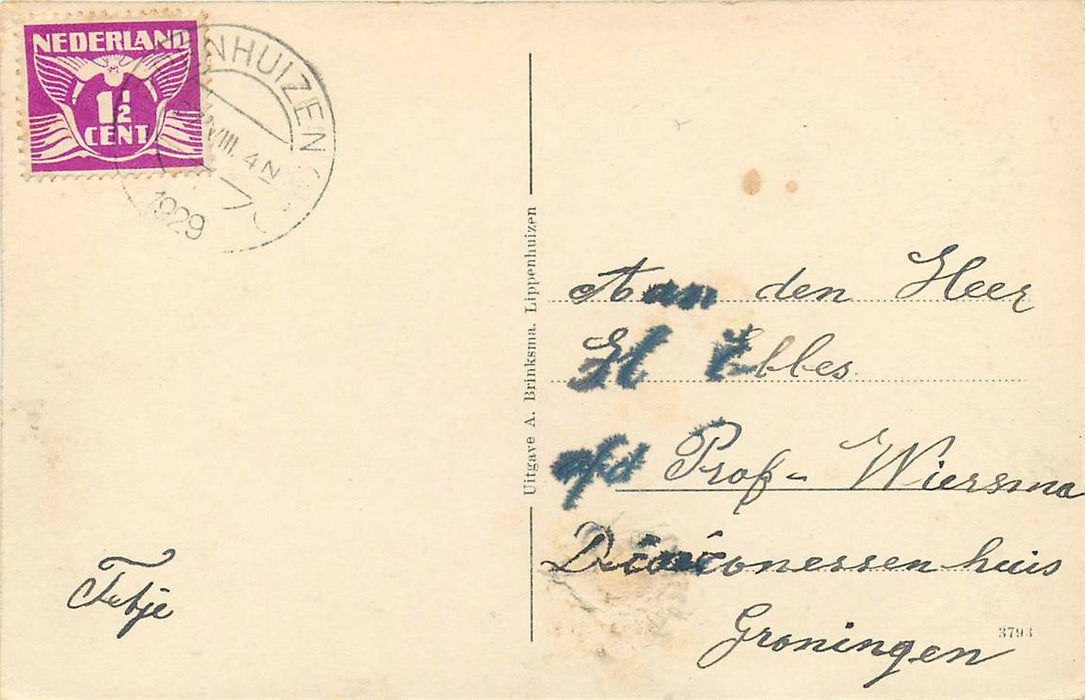 NEDERLAND
1½
CENT
NHUIZEN
VIII. 4 N
1929
Uitgave A. Brinksma. Lippenhuizen
Aan den Heer
H Ebbes
afd Prof- Wiersma
Diaconessenhuis
Groningen
3793